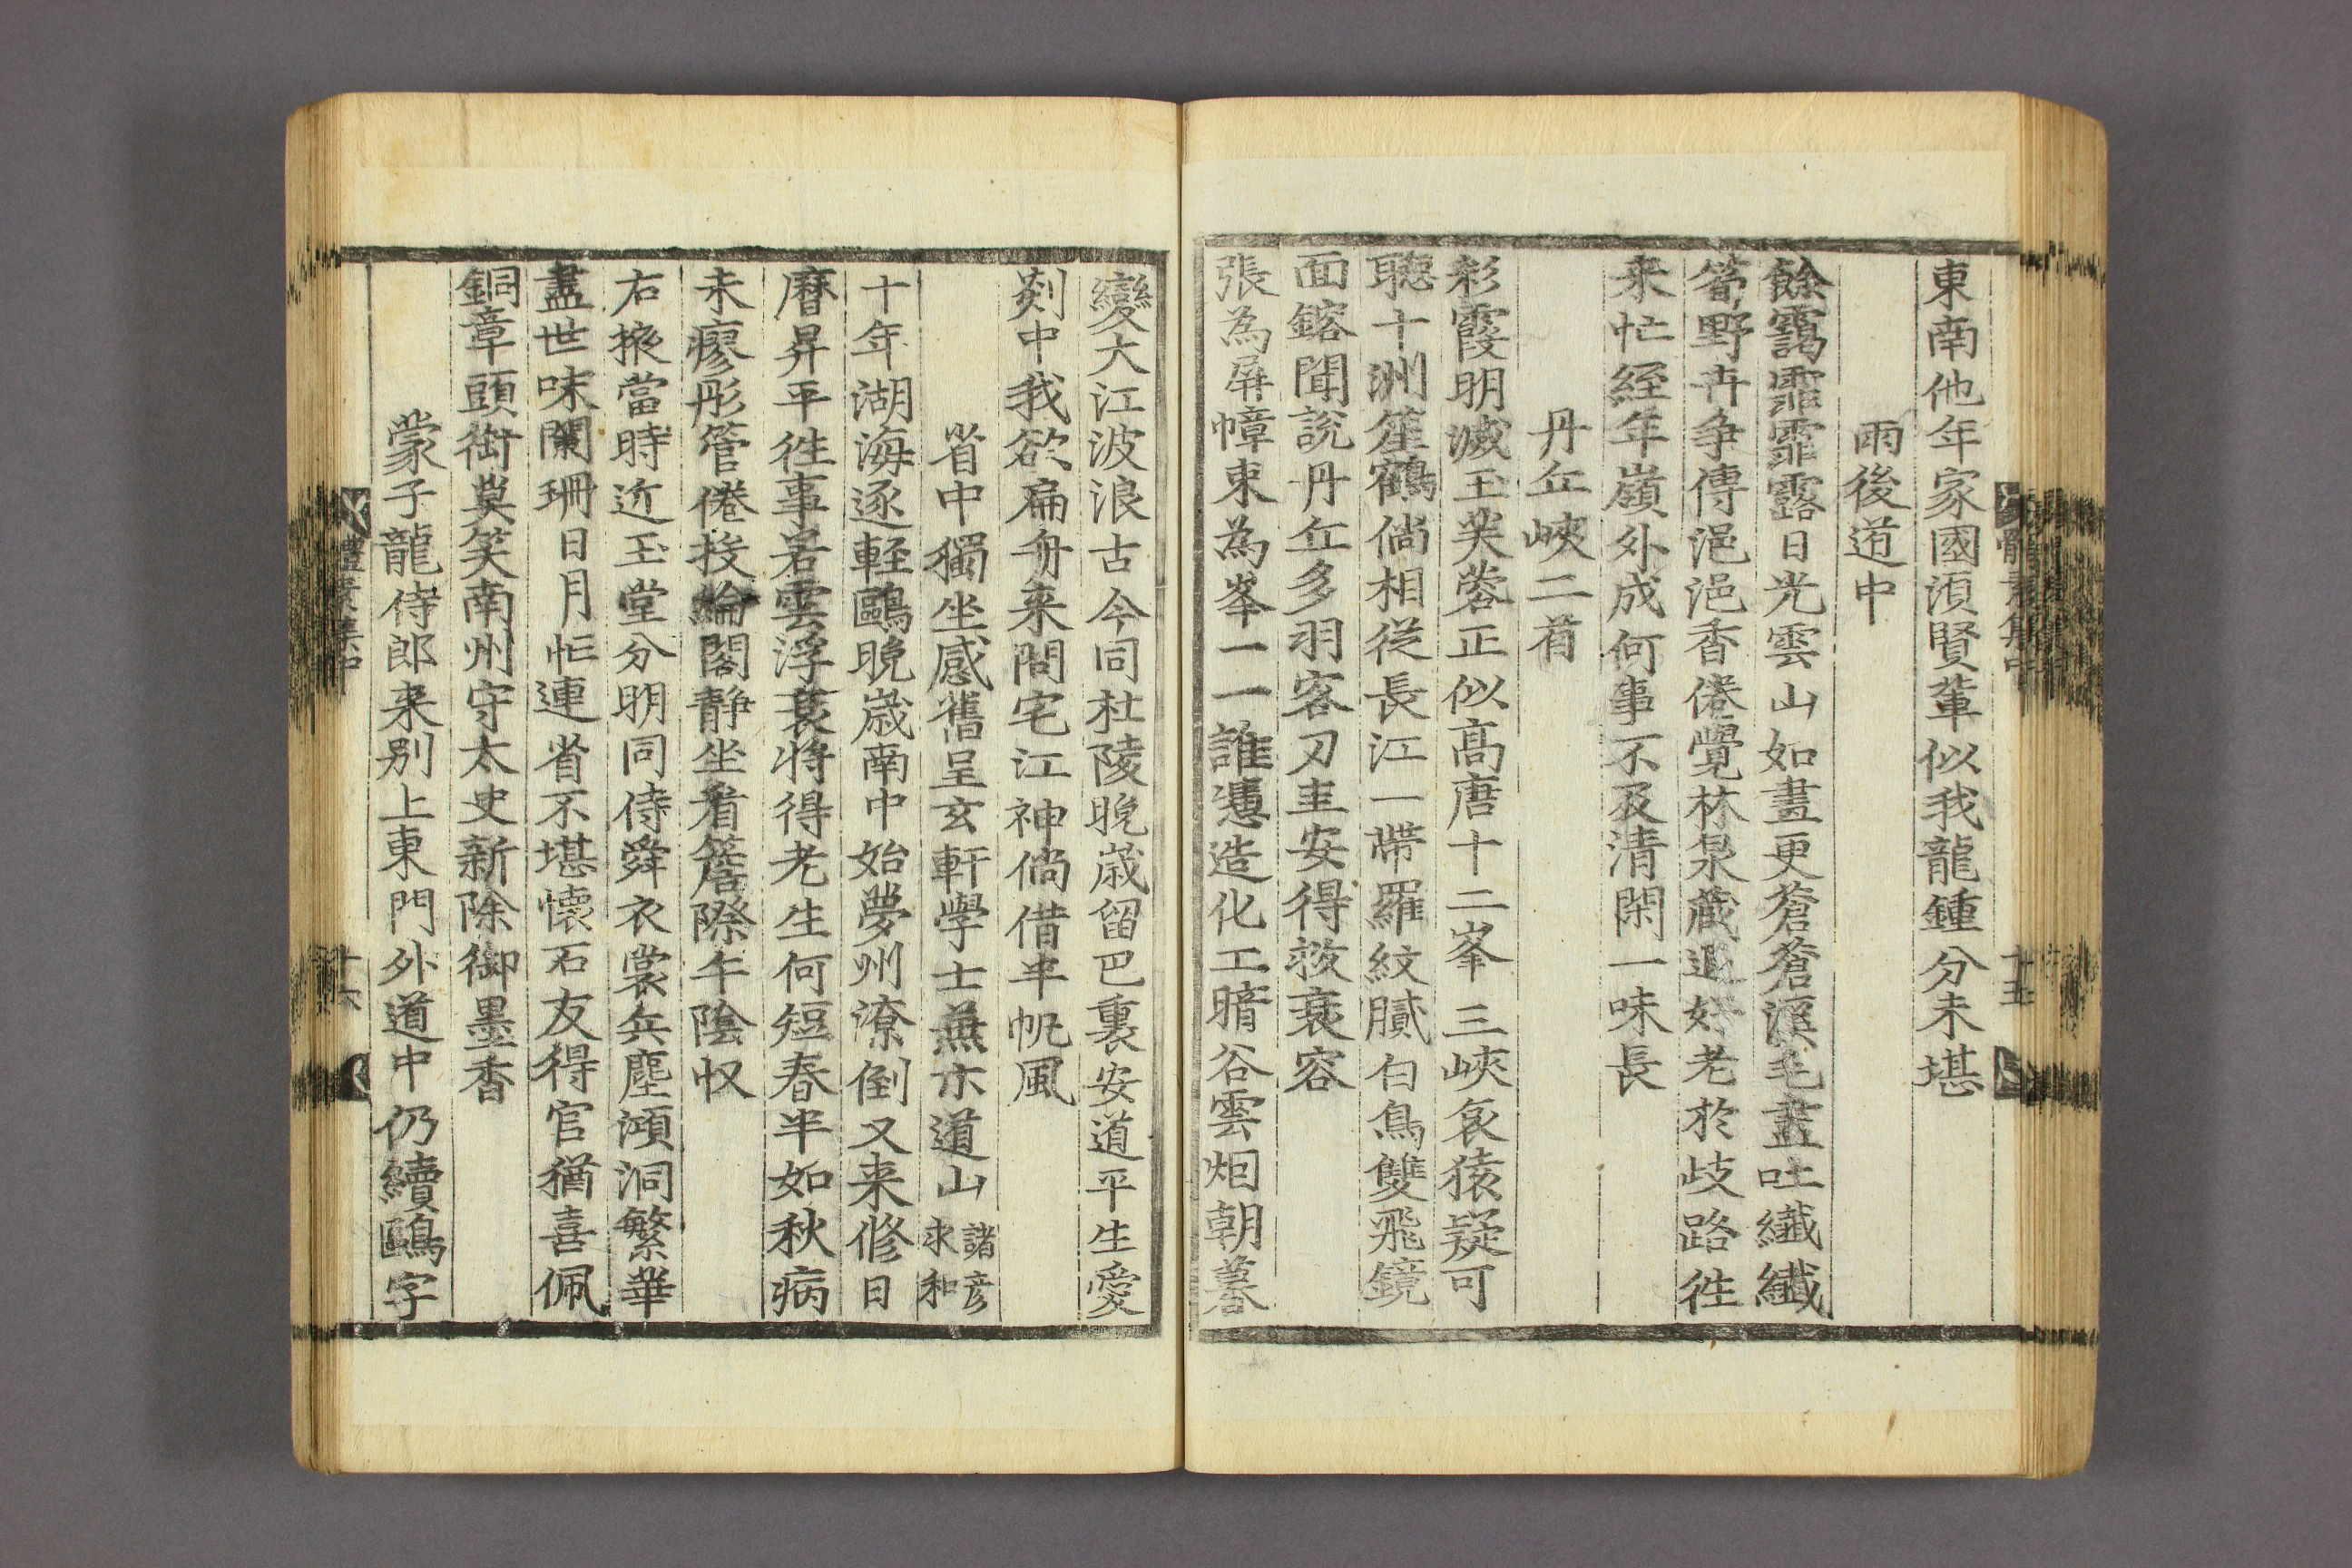 東南他年家國湏賢軰似我龍鍾分未堪
雨後道中
餘靄霏霏露日光雲山如畫更蒼蒼溪毛盡吐纖纖
筍野卉争傳浥浥香倦覺林泉蔵退好老於歧路徃
来忙経年嶺外成何事不及清閑一味長
丹丘峽二首
彩霞明滅玉芙蓉正似髙唐十二峯三峽哀猿疑可
聽十洲笙鶴倘相從長江一帶羅紋膩白鳥雙飛鏡
面鎔聞說丹丘多羽客刀圭安得救衰容
張為屏幛束為峯一一誰憑造化工暗谷雲烟朝暮
變大江波浪古今同杜陵晩歳留巴裏安道平生愛
剡中我欲扁舟来問宅江神倘借半帆風
省中獨坐感舊呈玄軒學士蕪亦道山諸彦求和
十年湖海逐軽鷗晩歳南中始夢州潦倒又来修日
曆昇平徃事若雲浮衰将得老生何短春半如秋病
未瘳彤管倦抛綸閣靜坐看簷際午陰收
右掖當時近玉堂分明同侍舜衣裳兵塵澒洞繁華
盡世味闌珊日月忙連省不堪懷石友得官猶喜佩
銅章頭銜莫笑南州守太史新除御墨香
蒙子龍侍郎来别上東門外道中仍續鷗字
體素集中
十五
十六